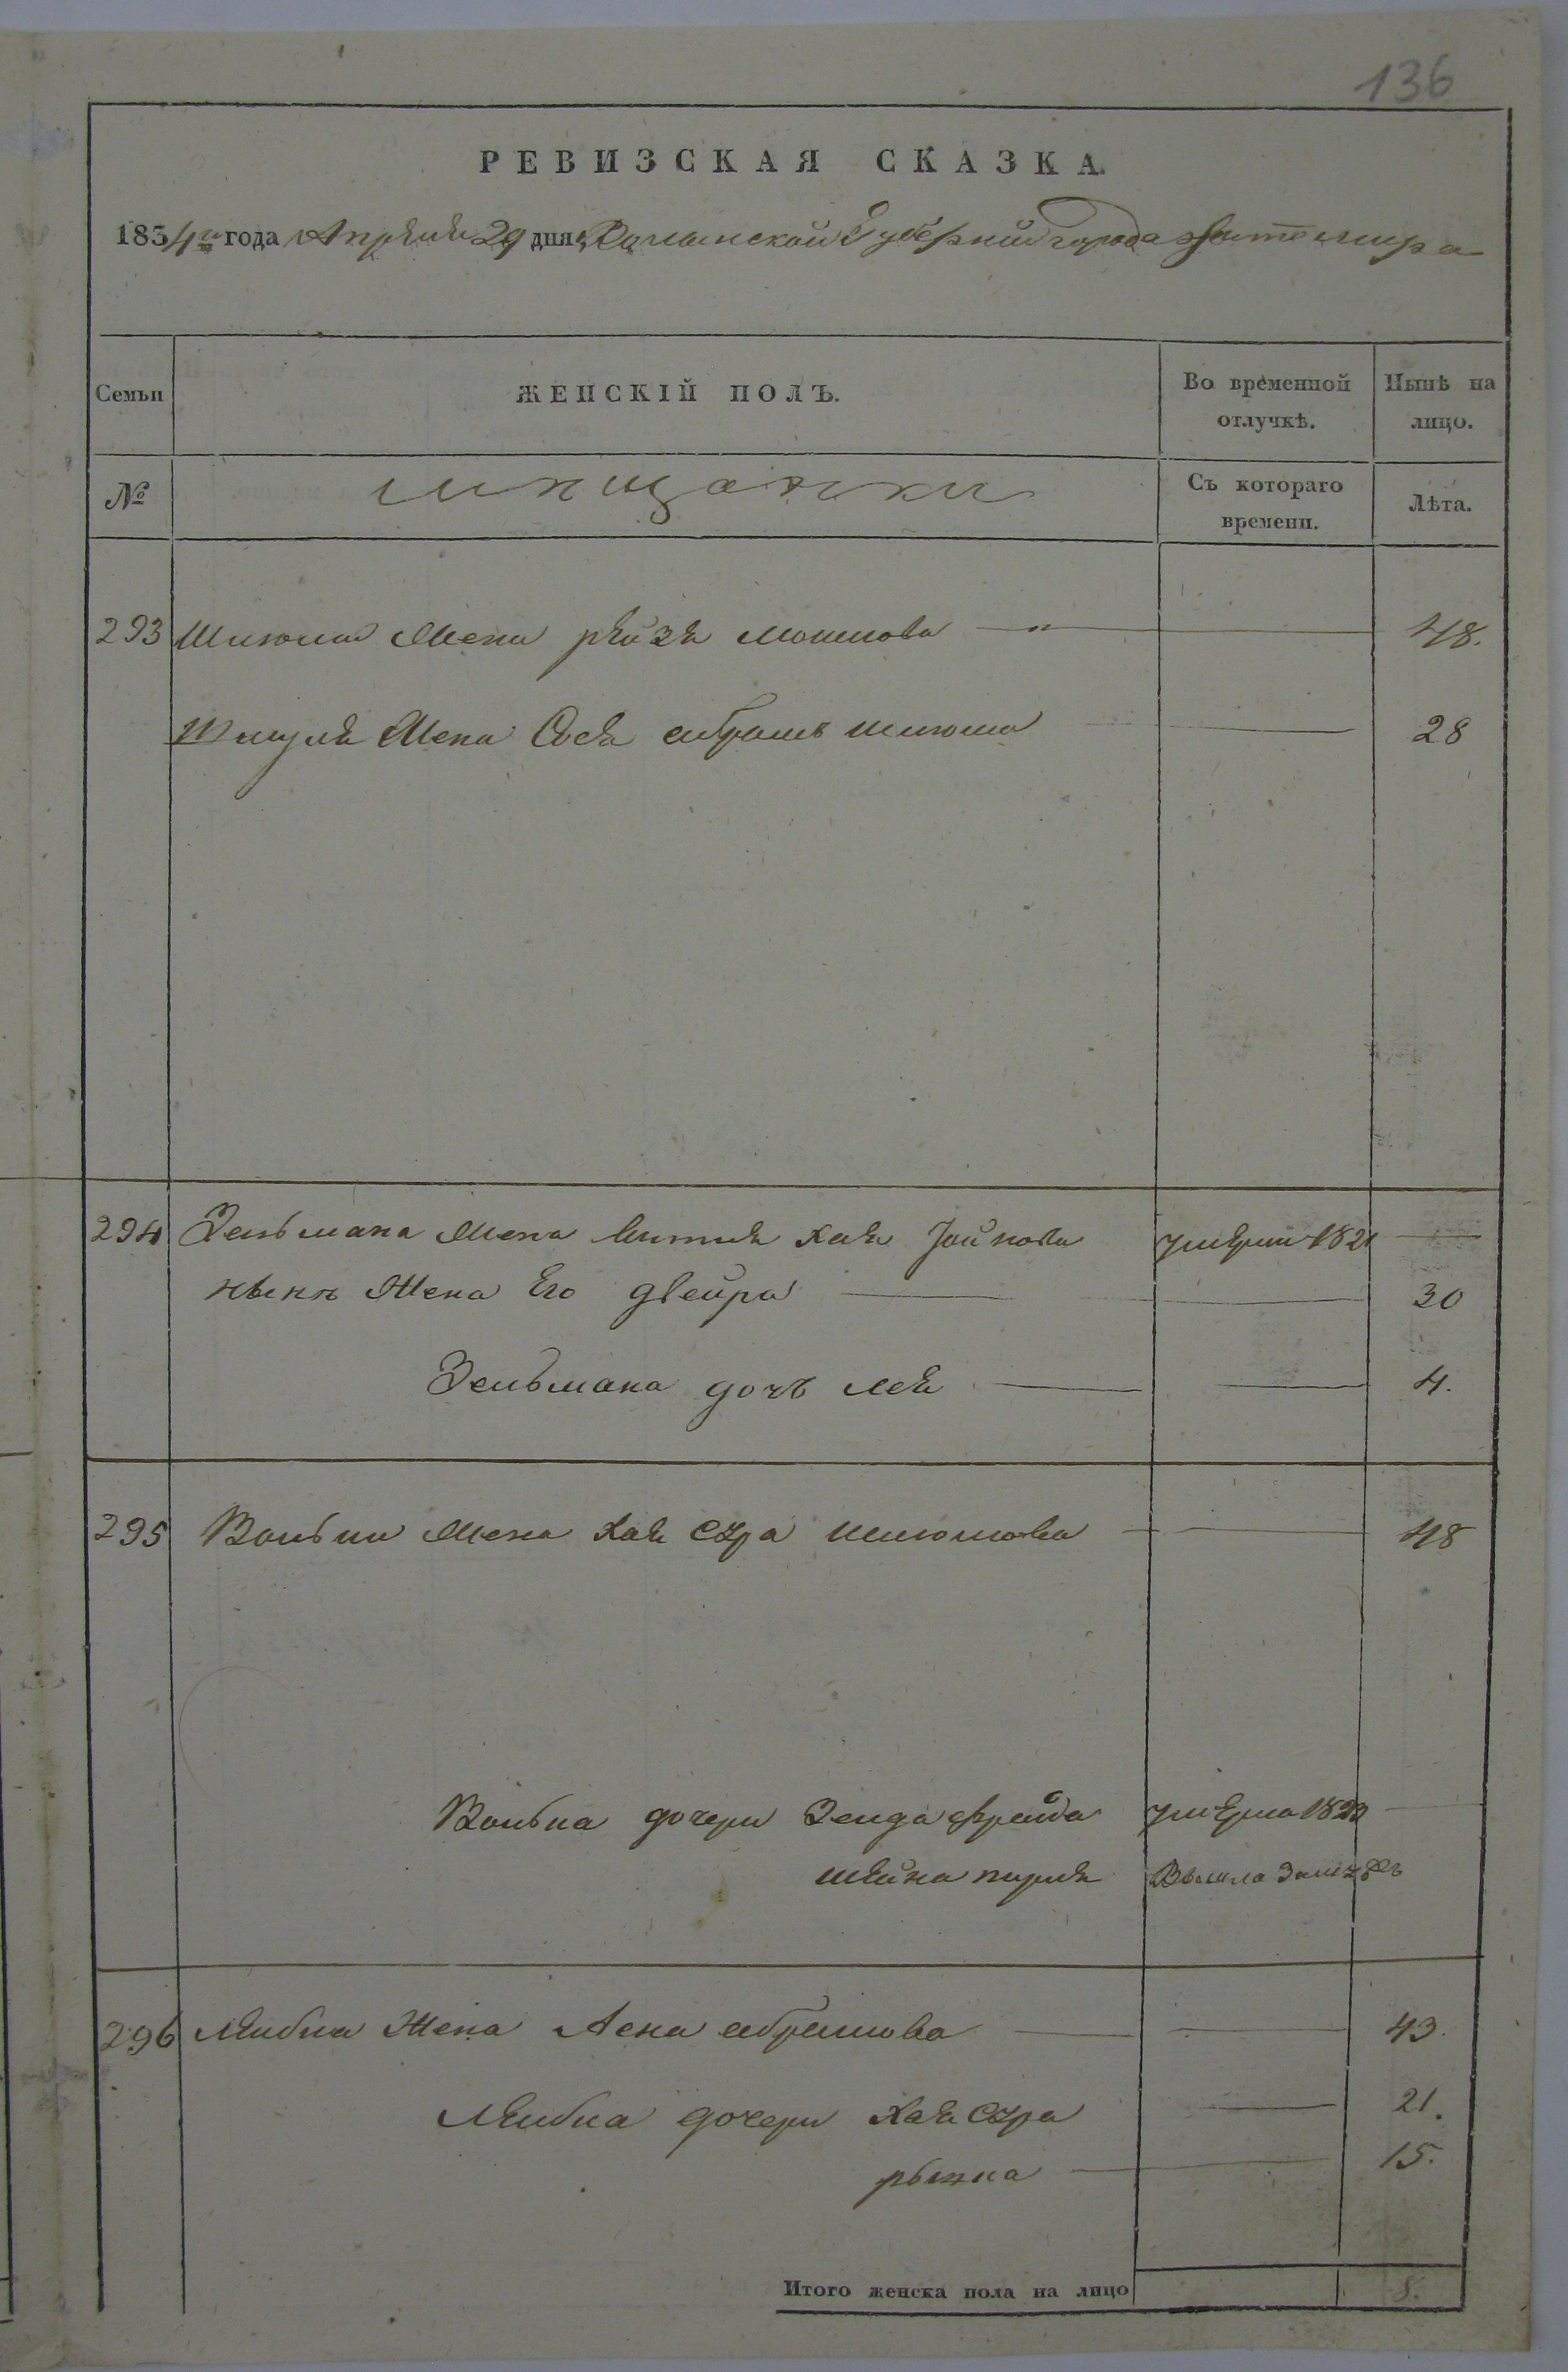 136
РЕВИЗСКАЯ СКАЗКА.
1834го года Апреля 29 дня, Волынской Губернии города Житомира
Семьи ЖЕНСКІЙ ПОЛЪ. Во временной отлучкѣ. Нынѣ на лицо.
№ мѣщанки Съ котораго времени. Лѣта.
293 Шлюма Жена рейзя мошкова 48.
Шмуля Жена Сося абрамъ шлюма 28
294 Зельмана Жена хая умерши 1821
нынѣ Жена Его двейра 30
Зельмана дочъ лея 4.
295 Вольки Жена хая сура шлюмова 48
Волька дочери Зелда фрейда умерла
шейна перля Вышла замуж
296 Лейбка Жена Лена абрамова 43.
Лейбка дочери хая сура 21.
рывка 15.
Итого женска пола на лицо 8.